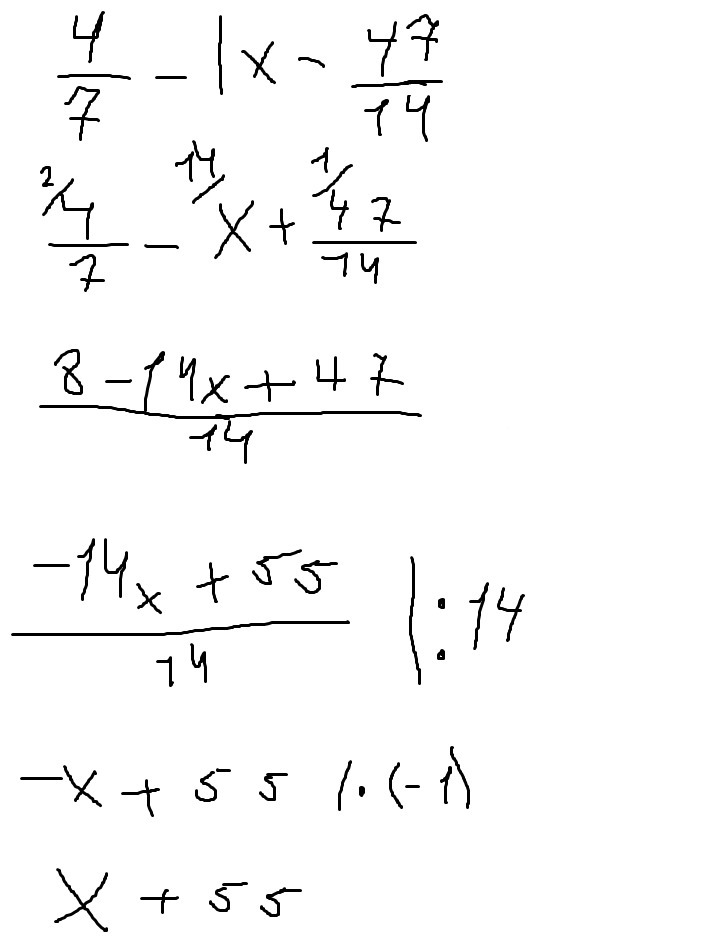 4/7 - 1x - 47/14
2/ 4/7 - 14/ x + 1/ 47/14
(8 - 14x + 47)/14
(-14x + 55)/14 | : 14
-x + 55 / · (-1)
x + 55